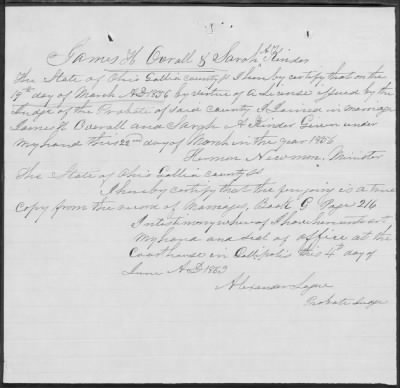 James H Overall & Sarah A Kinder
The State of Ohio Gallia county SS I hereby certify that on the
19th day of March AD 1856 by virtue of a License issued by the
Judge of the Probate of said county I Joined in marriage
James H Overall and Sarah A Kinder Given under
my hand this 22nd day of March in the year 1856
Newmon, Minister
The State of Ohio Gallia county SS
I hereby certify that the forgoing is a true
Copy from the record of Marriages, Book G Page 216
In testimony wherof I have hereunto set
my hand and seal of office at the
Courthouse in Gallipolis this 4th day of
June AD 1863
Alexander
Probate Judge